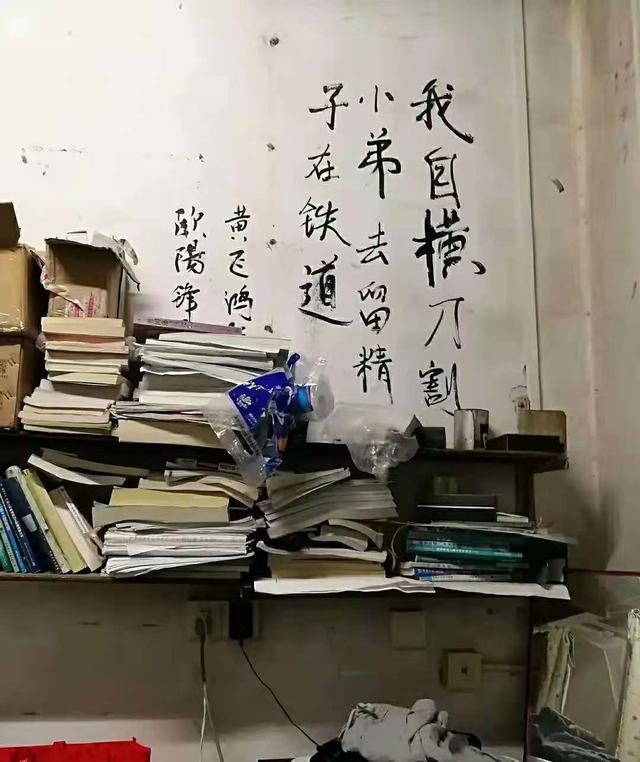 我自横刀割
小弟去留精
子在铁道
黄飞鸿
欧陽锋